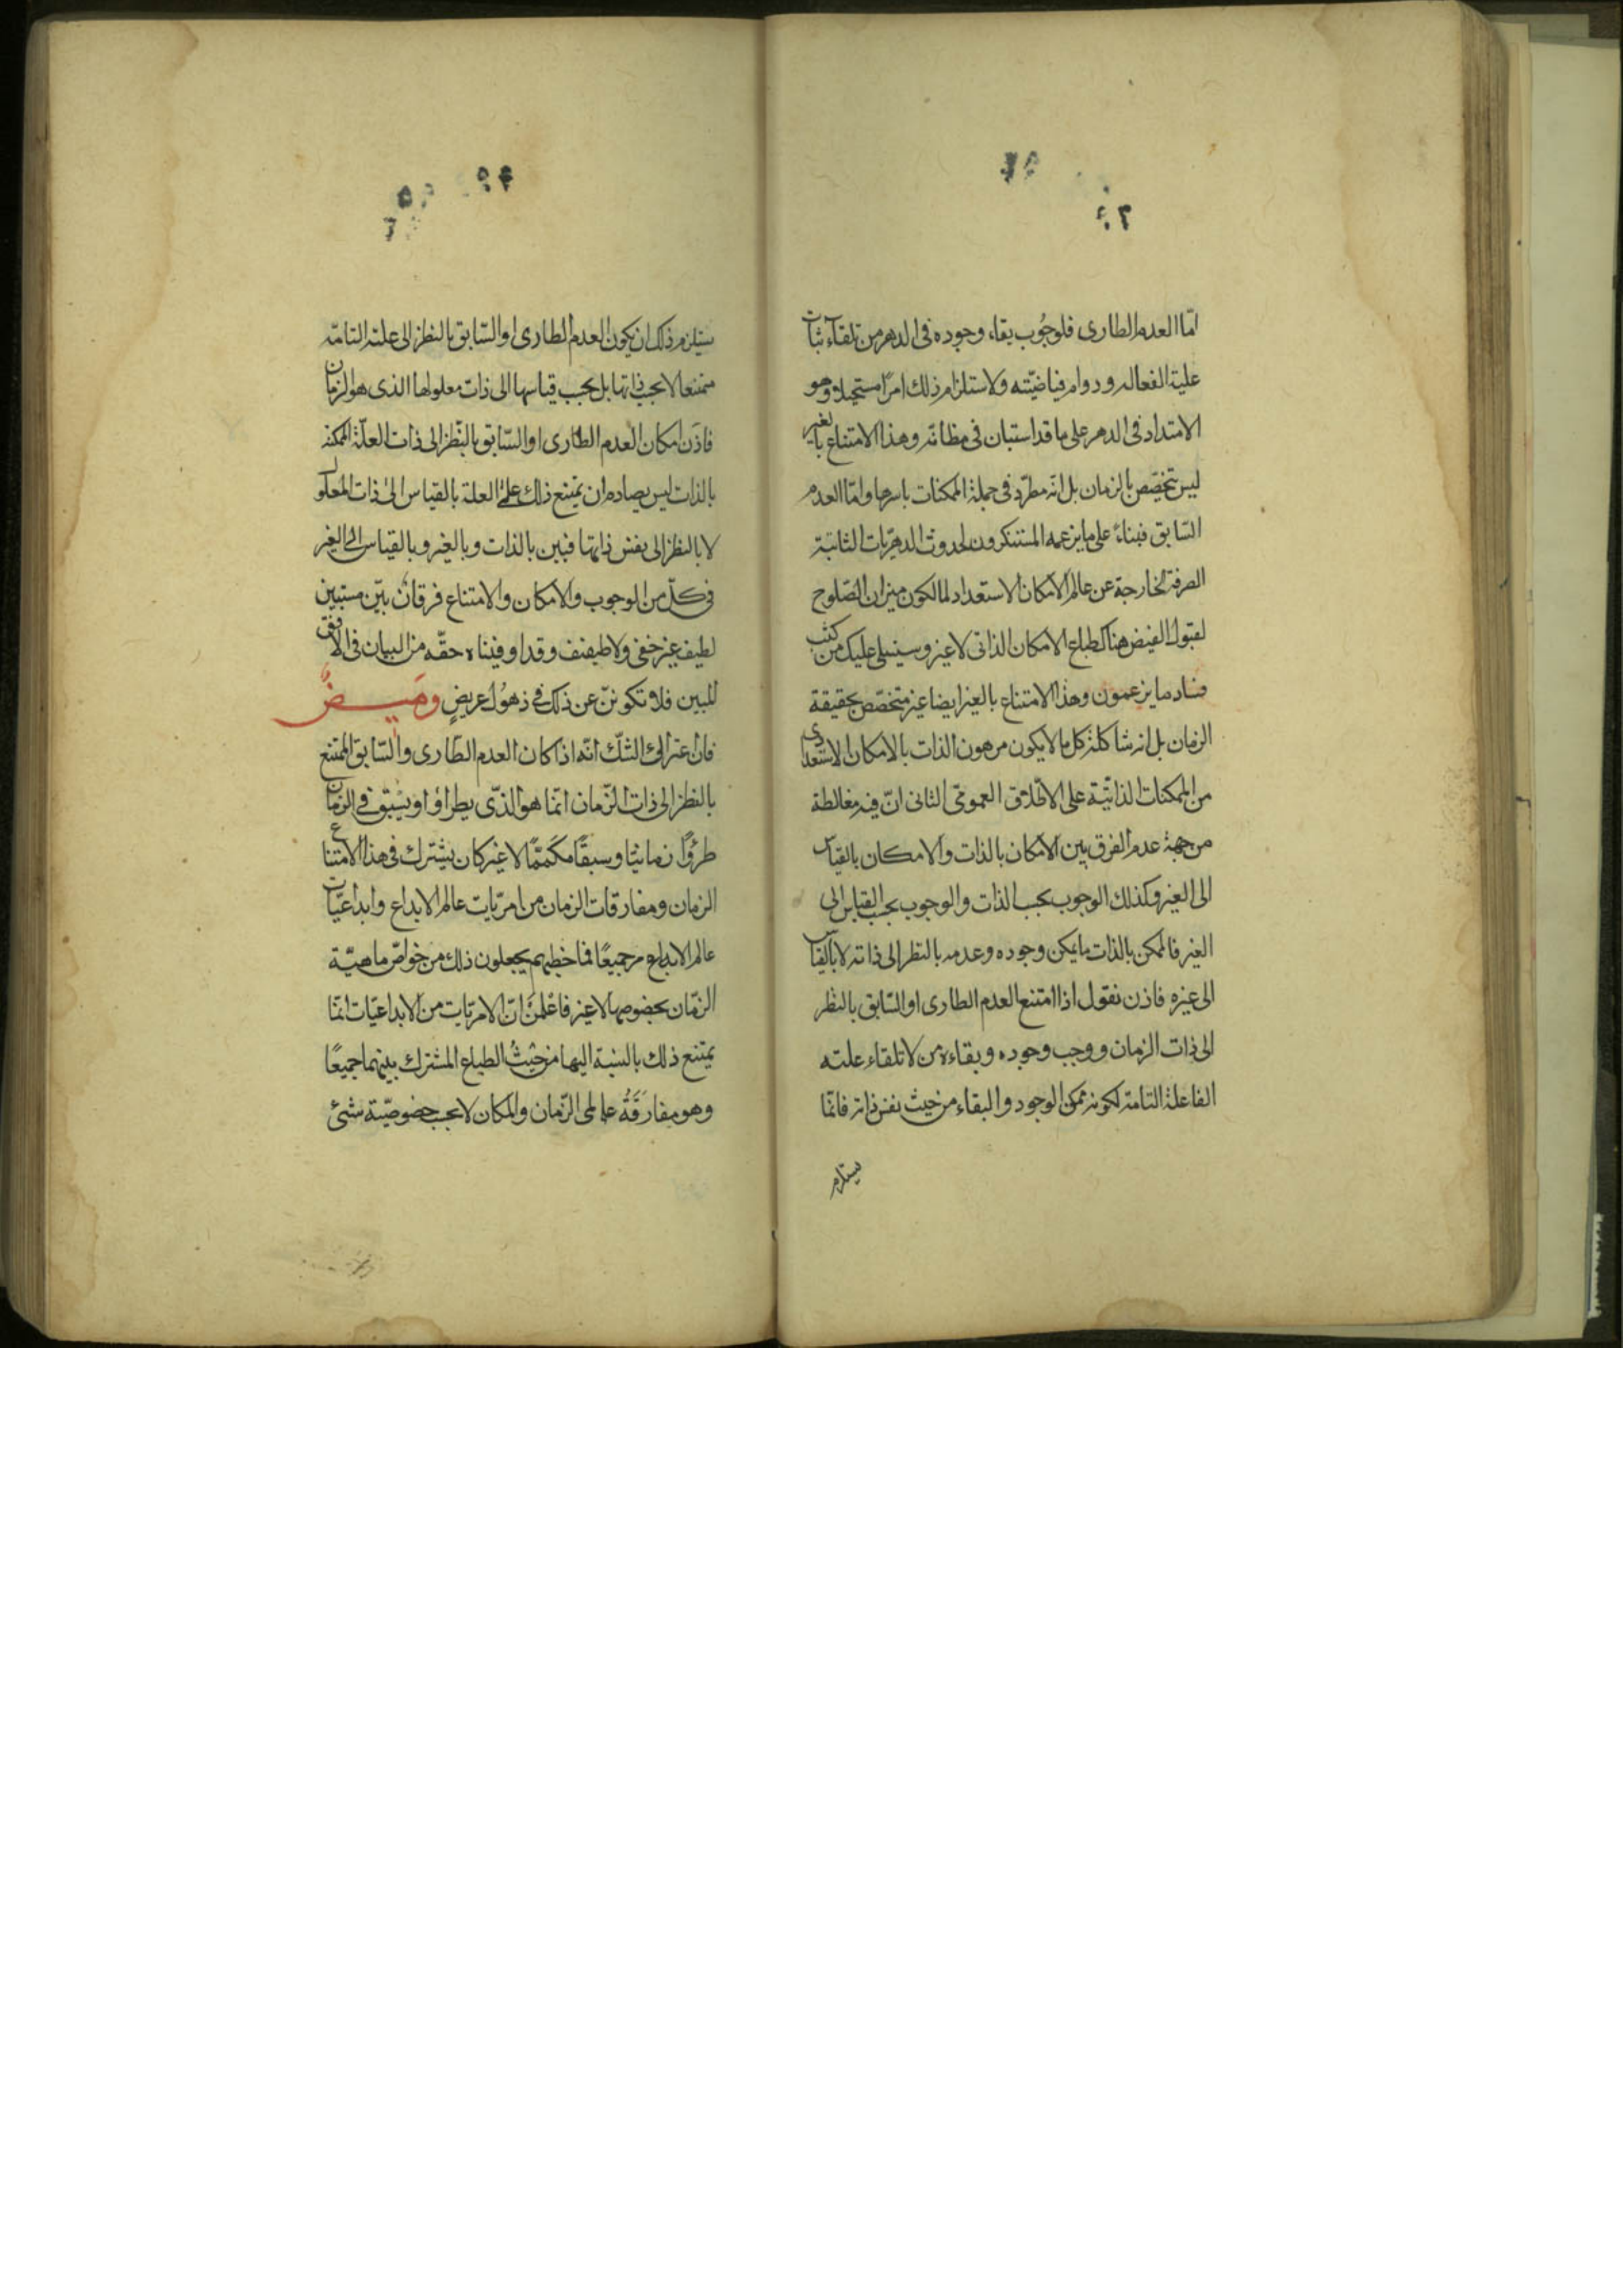 امّا العدم الطارى فلوجُوب بقاء وجوده فى الدهر من تلقاء ثبات
علية الفعاله ودوام فياضيّته ولاستلزام ذلك امرًا مستحيلا وهو
الامتداد فى الدهر على ما قد استبان فى مظانّه وهذا الامتناع بالغير
ليس تخصّص بالزمان بل انّه مطرّد فى جملة الممكنات باسرها وامّا العدم
السّابق فبناءً على ما يزعمه المستنكرون لحدوث الدهريّات الثابتة
الصرفة الخارجة عن عالم الامكان الاستعداد لما لكون ميزان الصّلوح
لقبول الفيض هناك طباع الامكان الذاتى لا غير وسيتلى عليك من كثب
فساد ما يزعمون وهذا الامتناع بالغير ايضا غير متخصّص بحقيقة
الزمان بل انه شاكلة كل ما لا يكون مرهون الذات بالامكان الاستعدادى
من الممكنات الذاتيّة على الاطلاق العمومى الثانى انّ فيه مغالطة
من جهة عدم الفرق بين الامكان بالذات والامكان بالقياس
الى الغير وكذلك الوجوب بحسب الذات والوجوب بحسب القياس الى
الغير فالممكن بالذات ما يمكن وجوده وعدمه بالنظر الى ذاته لا بالقياس
الى غيره فاذن نقول اذا امتنع العدم الطارى او السّابق بالنظر
الى ذات الزمان ووجب وجوده وبقاءه من لا تلقاء علته
الفاعلة التامة لكونه ممكن الوجود والبقاء من حيث نفس ذاته فانّما
يستلزم
يستلزم ذلك ان يكون العدم الطارى او السّابق بالنظر الى علته التامّة
ممتنعا لا بحسب ذاتها بل بحسب قياسها الى ذات معلولها الذى هو الزمان
فاذن امكان العدم الطارى او السّابق بالنّظر الى ذات العلّة الممكنة
بالذات ليس يصادم ان يمتنع ذلك على العلة بالقياس الى ذات المعلول
لا بالنظر الى نفس ذاتها فبين بالذات وبالغير وبالقياس الى الغير
فى كلّ من الوجوب والامكان والامتناع فرقانٌ بيّن مستبين
لطيف غير خفى ولا طفيف وقد اوفيناه حقّه من البيان فى الافق
المبين فلا تكوننّ عن ذلك فى ذهُول عريضٍ ومَيــضٌ
فان اعتراك الشكّ انّه اذا كان العدم الطّارى والسّابق الممتنع
بالنظر الى ذات الزّمان انّما هو الذى يطرأ او يسْبق فى الزمان
طرؤًا زمانيّا وسبقًا مكمّمًا لا غير كان يشترك فى هذا الامتناع
الزمان ومفارقات الزمان من امريّات عالم الابداع وابداعيّات
عالم الابداع جميعًا فما خطبهم يجعلون ذلك من خواصّ ماهيّة
الزّمان بخصوصها لا غير فاعْلمَنّ انّ الامريّات من الابداعيّات انّما
يمتنع ذلك بالنسبة اليها من حيْثُ الطباع المشترك بينهما جميعًا
وهو مفارَقَةُ عالمى الزّمان والمكان لا بحسب خصوصيّة شئ